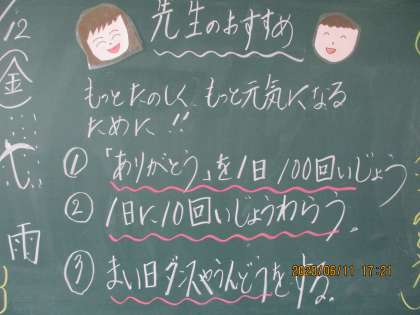 先生のおすすめ
もっとたのしく もっと元気になる
ために!!
① 「ありがとう」を1日 100回いじょう
② 1日に10回いじょうわらう。
③ まい日ダンスやうんどうをする。
12
(金)
雨
2020/06/11 17:21